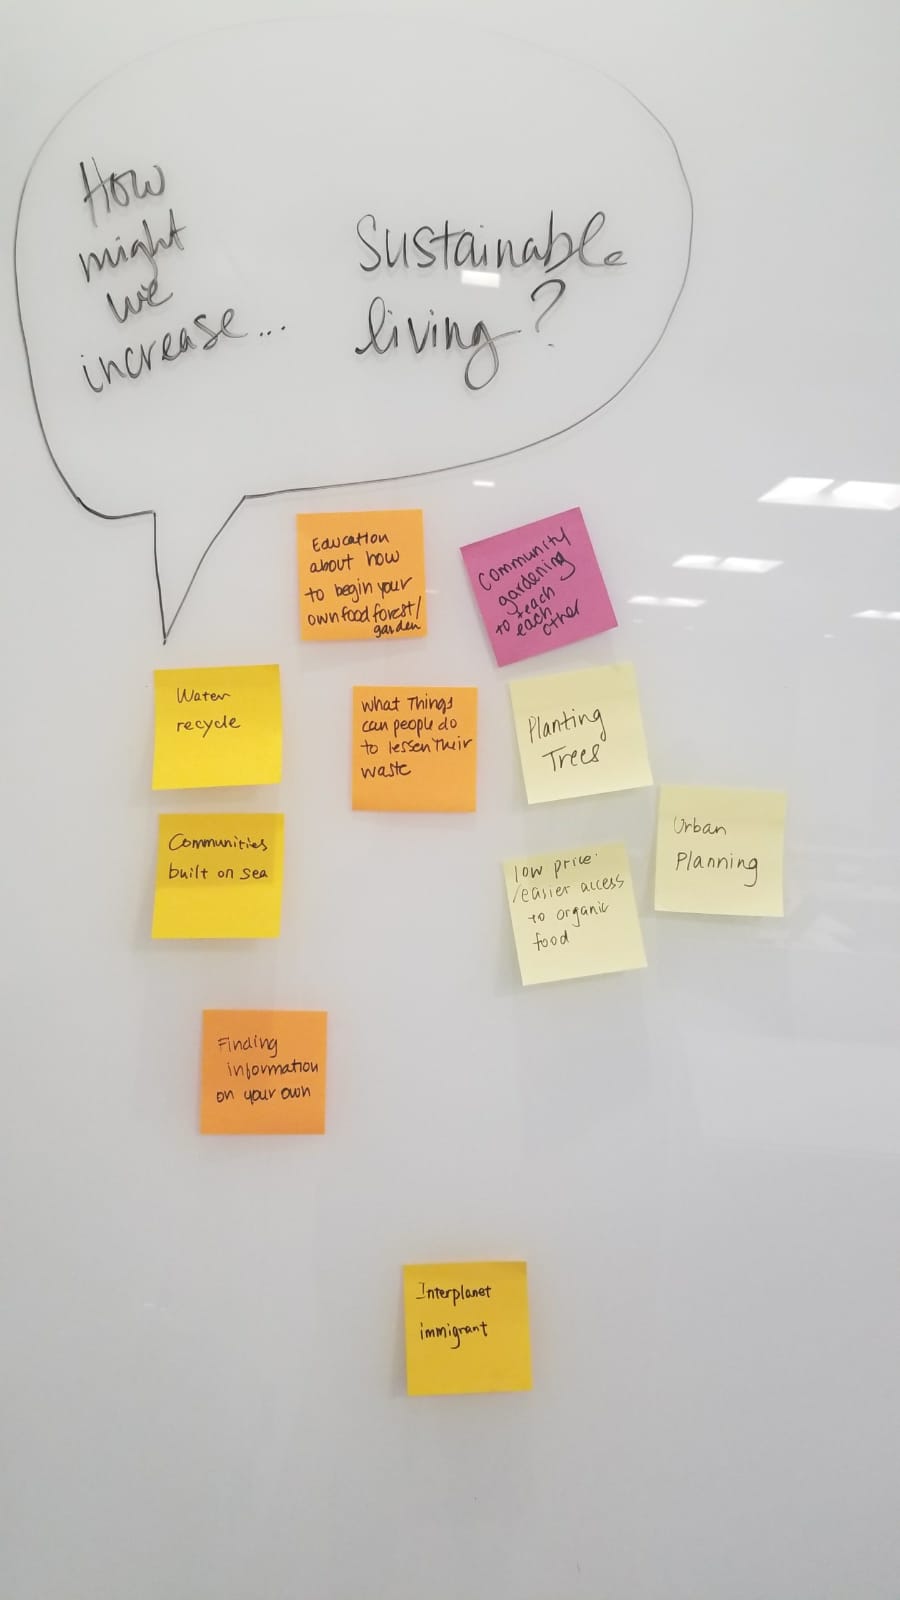 How
might
we
increase...
Sustainable
living?
Education
about how
to begin your
own food forest/
garden
Community
gardening
to teach
each
other
Water
recycle
what Things
can people do
to lessen Their
waste
Planting
Trees
Urban
Planning
Communities
built on sea
low price
/easier access
to organic
food
Finding
information
on your own
Interplanet
immigrant